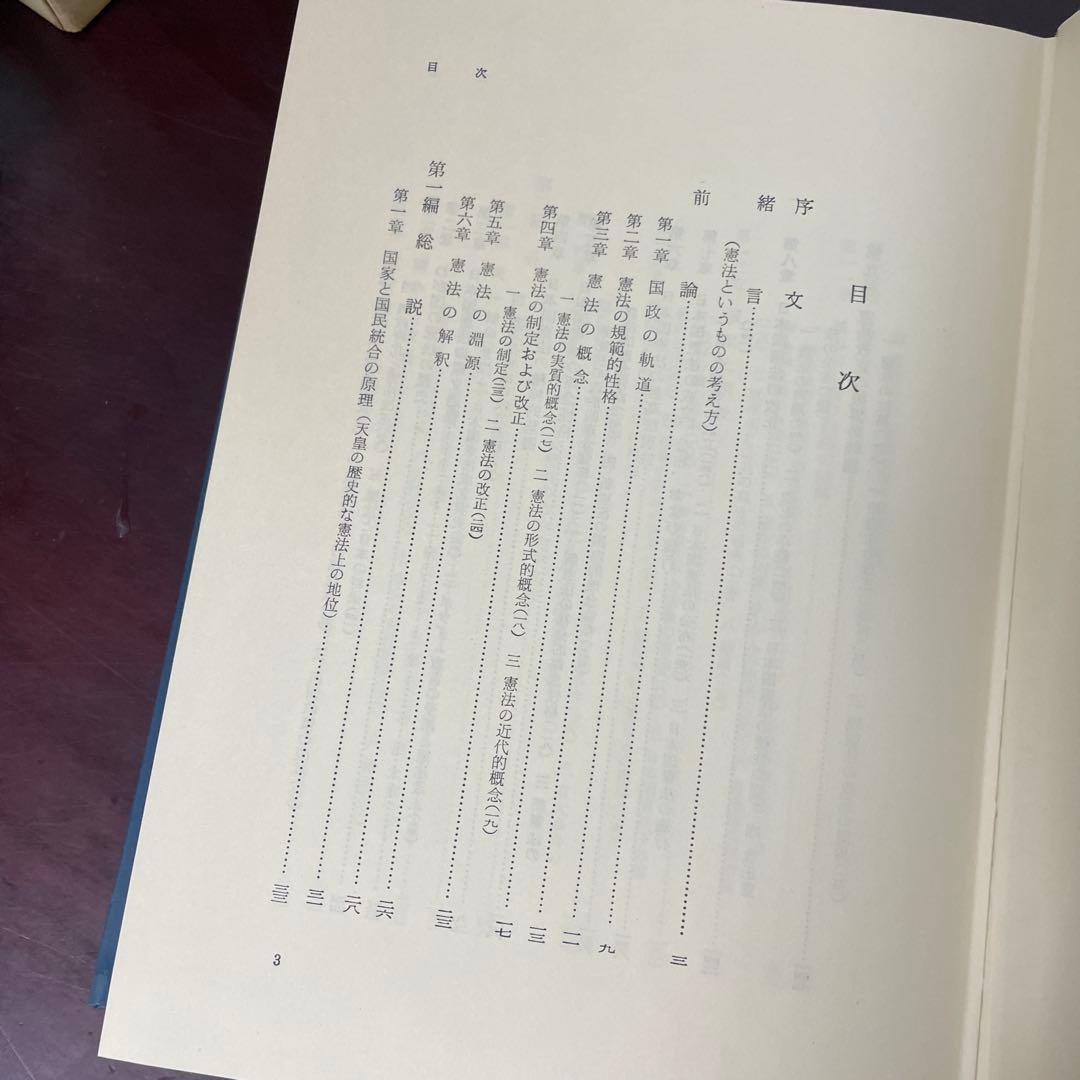 目次
目次
序文
緒言……三
(憲法というものの考え方)
前論……九
第一章 国政の軌道……一一
第二章 憲法の規範的性格……一三
第三章 憲法の概念……一七
一 憲法の実質的概念(一七) 二 憲法の形式的概念(一八) 三 憲法の近代的概念(一九)
第四章 憲法の制定および改正……二三
一 憲法の制定(二三) 二 憲法の改正(二四)
第五章 憲法の淵源……二六
第六章 憲法の解釈……二八
第一編 総説……三一
第一章 国家と国民統合の原理(天皇の歴史的な憲法上の地位)……三三
3